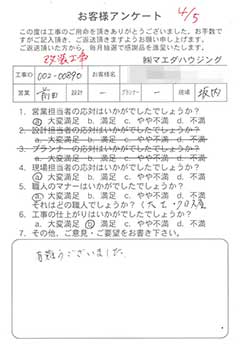 お客様アンケート 4/5
この度は工事のご用命を頂きありがとうございました。お手数で
すがご記入頂き、ご返送頂きますようお願い申し上げます。
ご返送頂いた方から、毎月抽選で感謝品を進呈いたします。
改装工事 ㈱マエダハウジング
工事ID 002-00890 お客様名
営業 前田 設計 ー プランナー ー 現場 坂内
1. 営業担当者の応対はいかがでしたでしょうか?
ⓐ 大変満足 b. 満足 c. やや不満 d. 不満
2. 設計担当者の応対はいかがでしたでしょうか?
a. 大変満足 b. 満足 c. やや不満 d. 不満
3. プランナーの応対はいかがでしたでしょうか?
a. 大変満足 b. 満足 c. やや不満 d. 不満
4. 現場担当者の応対はいかがでしたでしょうか?
ⓐ 大変満足 b. 満足 c. やや不満 d. 不満
5. 職人のマナーはいかがでしたでしょうか?
ⓐ 大変満足 b. 満足 c. やや不満 d. 不満
それはどの職人でしょうか?(大工・クロス屋
6. 工事の仕上がりはいかがでしたでしょうか?
a. 大変満足 ⓑ 満足 c. やや不満 d. 不満
7. その他、ご意見・ご要望をお書き下さい。
有難うございました。